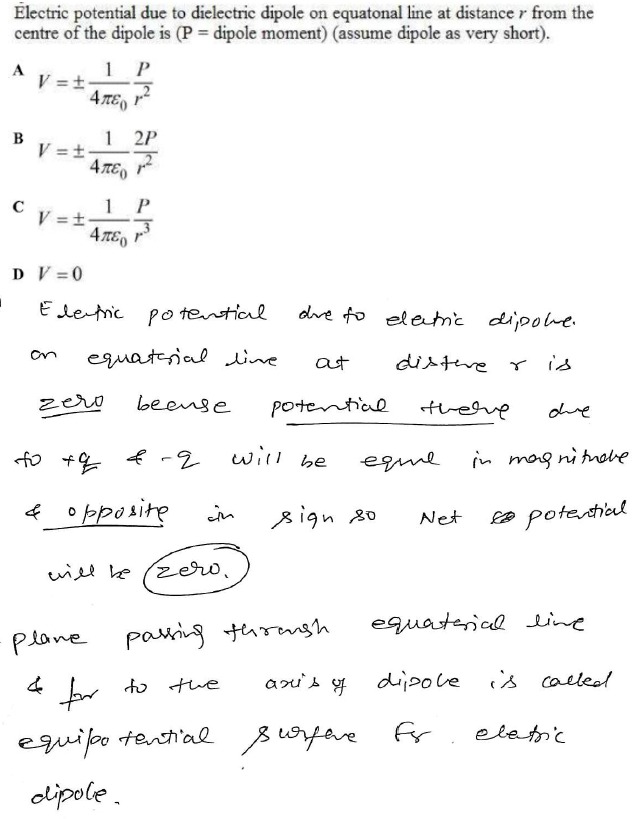 Electric potential due to dielectric dipole on equatonal line at distance r from the
centre of the dipole is (P = dipole moment) (assume dipole as very short).
A V = ± 1/4πε₀ P/r²
B V = ± 1/4πε₀ 2P/r²
C V = ± 1/4πε₀ P/r³
D V = 0
Electric potential due to electric dipole.
on equatorial line at distance r is
zero because potential there due
to +q & -q will be equal in magnitude
& opposite in sign so Net potential
will be zero.
plane passing through equatorial line
& to the axis of dipole is called
equipotential surface for electric
dipole.